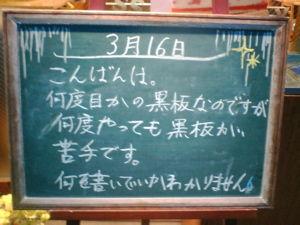 3月16日
こんばんは。
何度目かの黒板なのですが
何度やっても黒板が
苦手です。
何を書いていいかわかりません